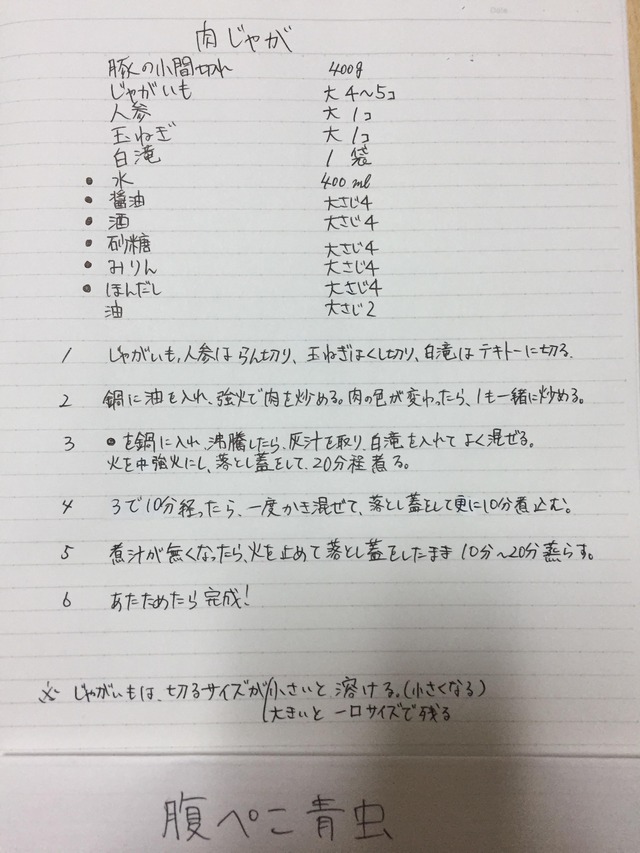 肉じゃが
豚の小間切れ 400g
じゃがいも 大4〜5コ
人参 大1コ
玉ねぎ 大1コ
白滝 1袋
● 水 400ml
● 醤油 大さじ4
● 酒 大さじ4
● 砂糖 大さじ4
● みりん 大さじ4
● ほんだし 大さじ4
油 大さじ2
1 じゃがいも,人参はらん切り、玉ねぎはくし切り、白滝はテキトーに切る.
2 鍋に油を入れ、強火で肉を炒める。肉の色が変わったら、1も一緒に炒める。
3 ●を鍋に入れ、沸騰したら、灰汁を取り、白滝を入れてよく混ぜる。
火を中強火にし、落とし蓋をして、20分程煮る。
4 3で10分経ったら、一度かき混ぜて、落とし蓋をして更に10分煮込む。
5 煮汁が無くなったら、火を止めて落とし蓋をしたまま10分〜20分蒸らす。
6 あたためたら完成!
※ じゃがいもは、切るサイズが小さいと溶ける。(小さくなる)
大きいと一口サイズで残る
腹ぺこ青虫